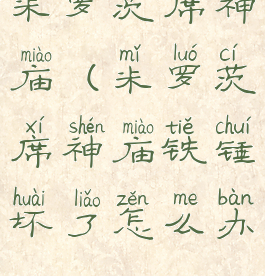 米罗茨席神
miào mǐ luó cí
庙（米罗茨
xí shén miào tiě chuí
席神庙铁锤
huài liǎo zěn me bàn
坏了怎么办